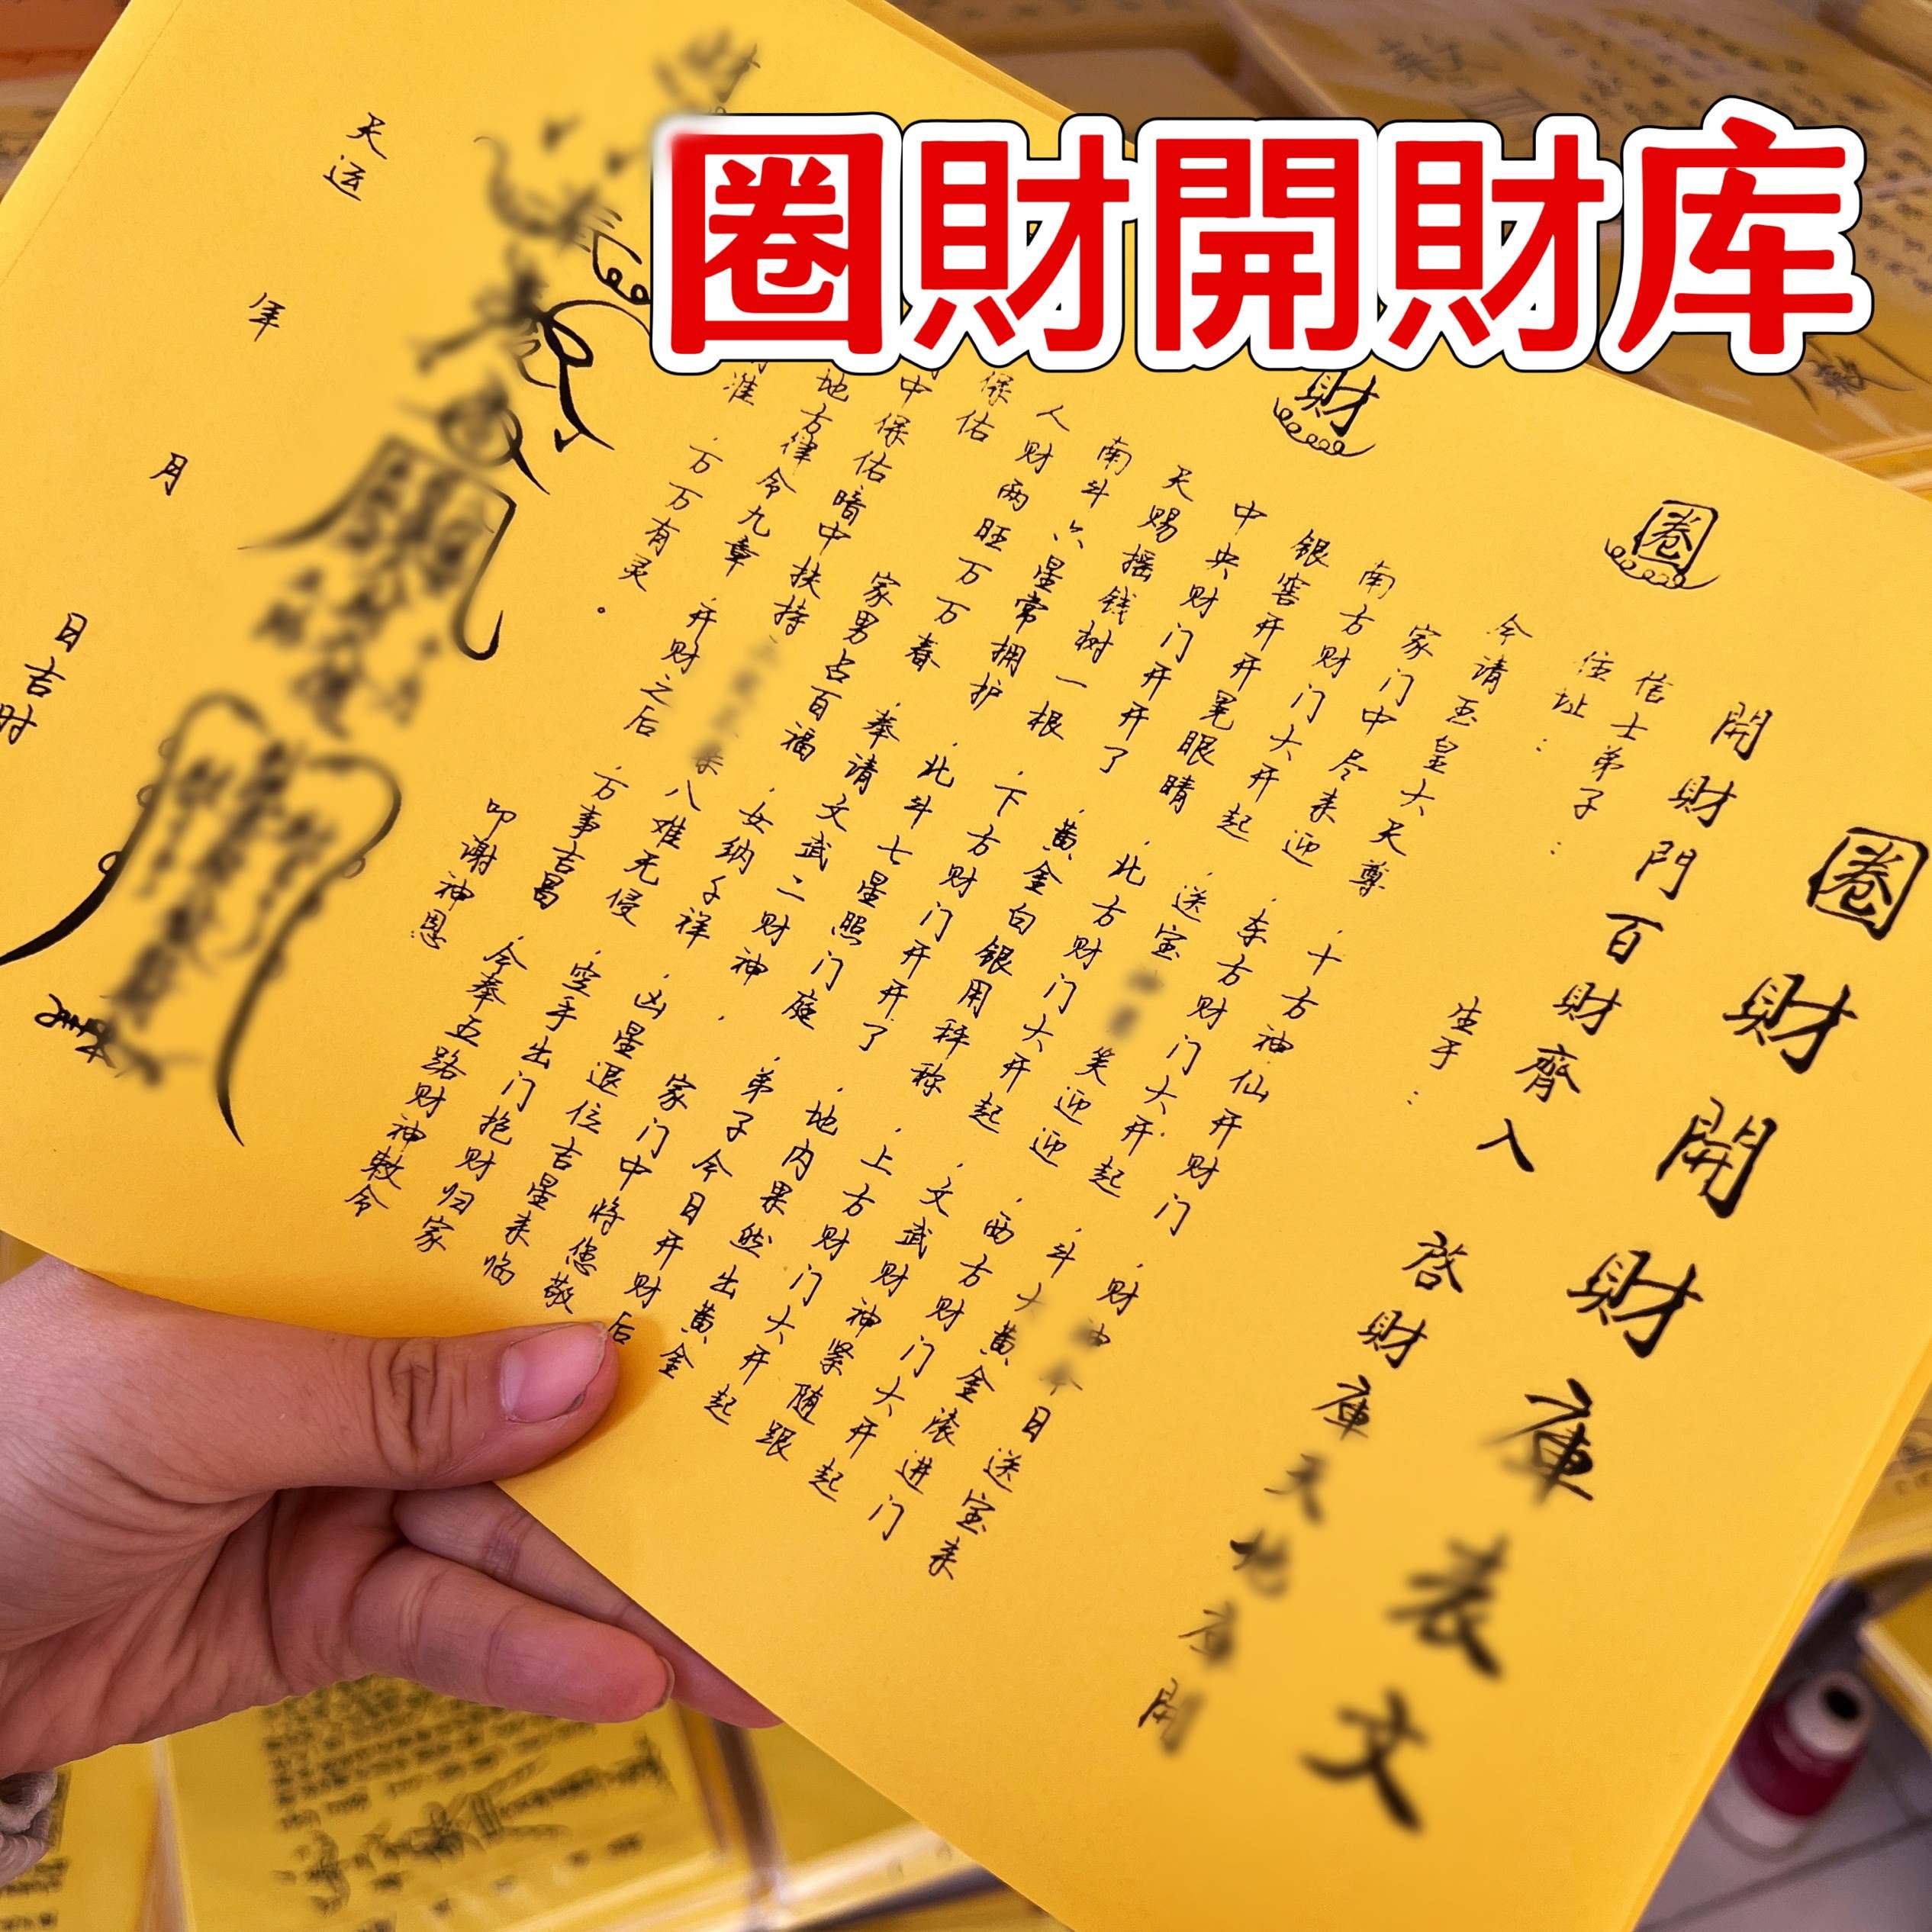 圈財開財库
圈財開財庫表文
開財門百財齊入 啓財庫天地庫開
圈
財
信士弟子： 生于：
住址：
今请玉皇大天尊，十方神仙开财门，财神今日送宝来
家门中尽来迎，东方财门大开起，斗大黄金滚进门
南方财门大开起，送宝笑迎迎，西方财门大开起
银窖开开晃眼睛，北方财门大开起，文武财神紧随跟
中央财门开开了，黄金白银用秤称，上方财门大开起
天赐摇钱树一根，下方财门开开了，地内果然出黄金
南斗六星常拥护，北斗七星照门庭，弟子今日开财后
人财两旺万万春，奉请文武二财神，家门中将您敬
保佑家男占百福，女纳千祥，凶星退位吉星来临
中保佑暗中扶持八难无侵，空手出门抱财归家
地方律令九章，开财之后，万事吉昌，今奉五路财神敕令
准，万万有灵。 叩谢神恩
天运 年 月 日吉时